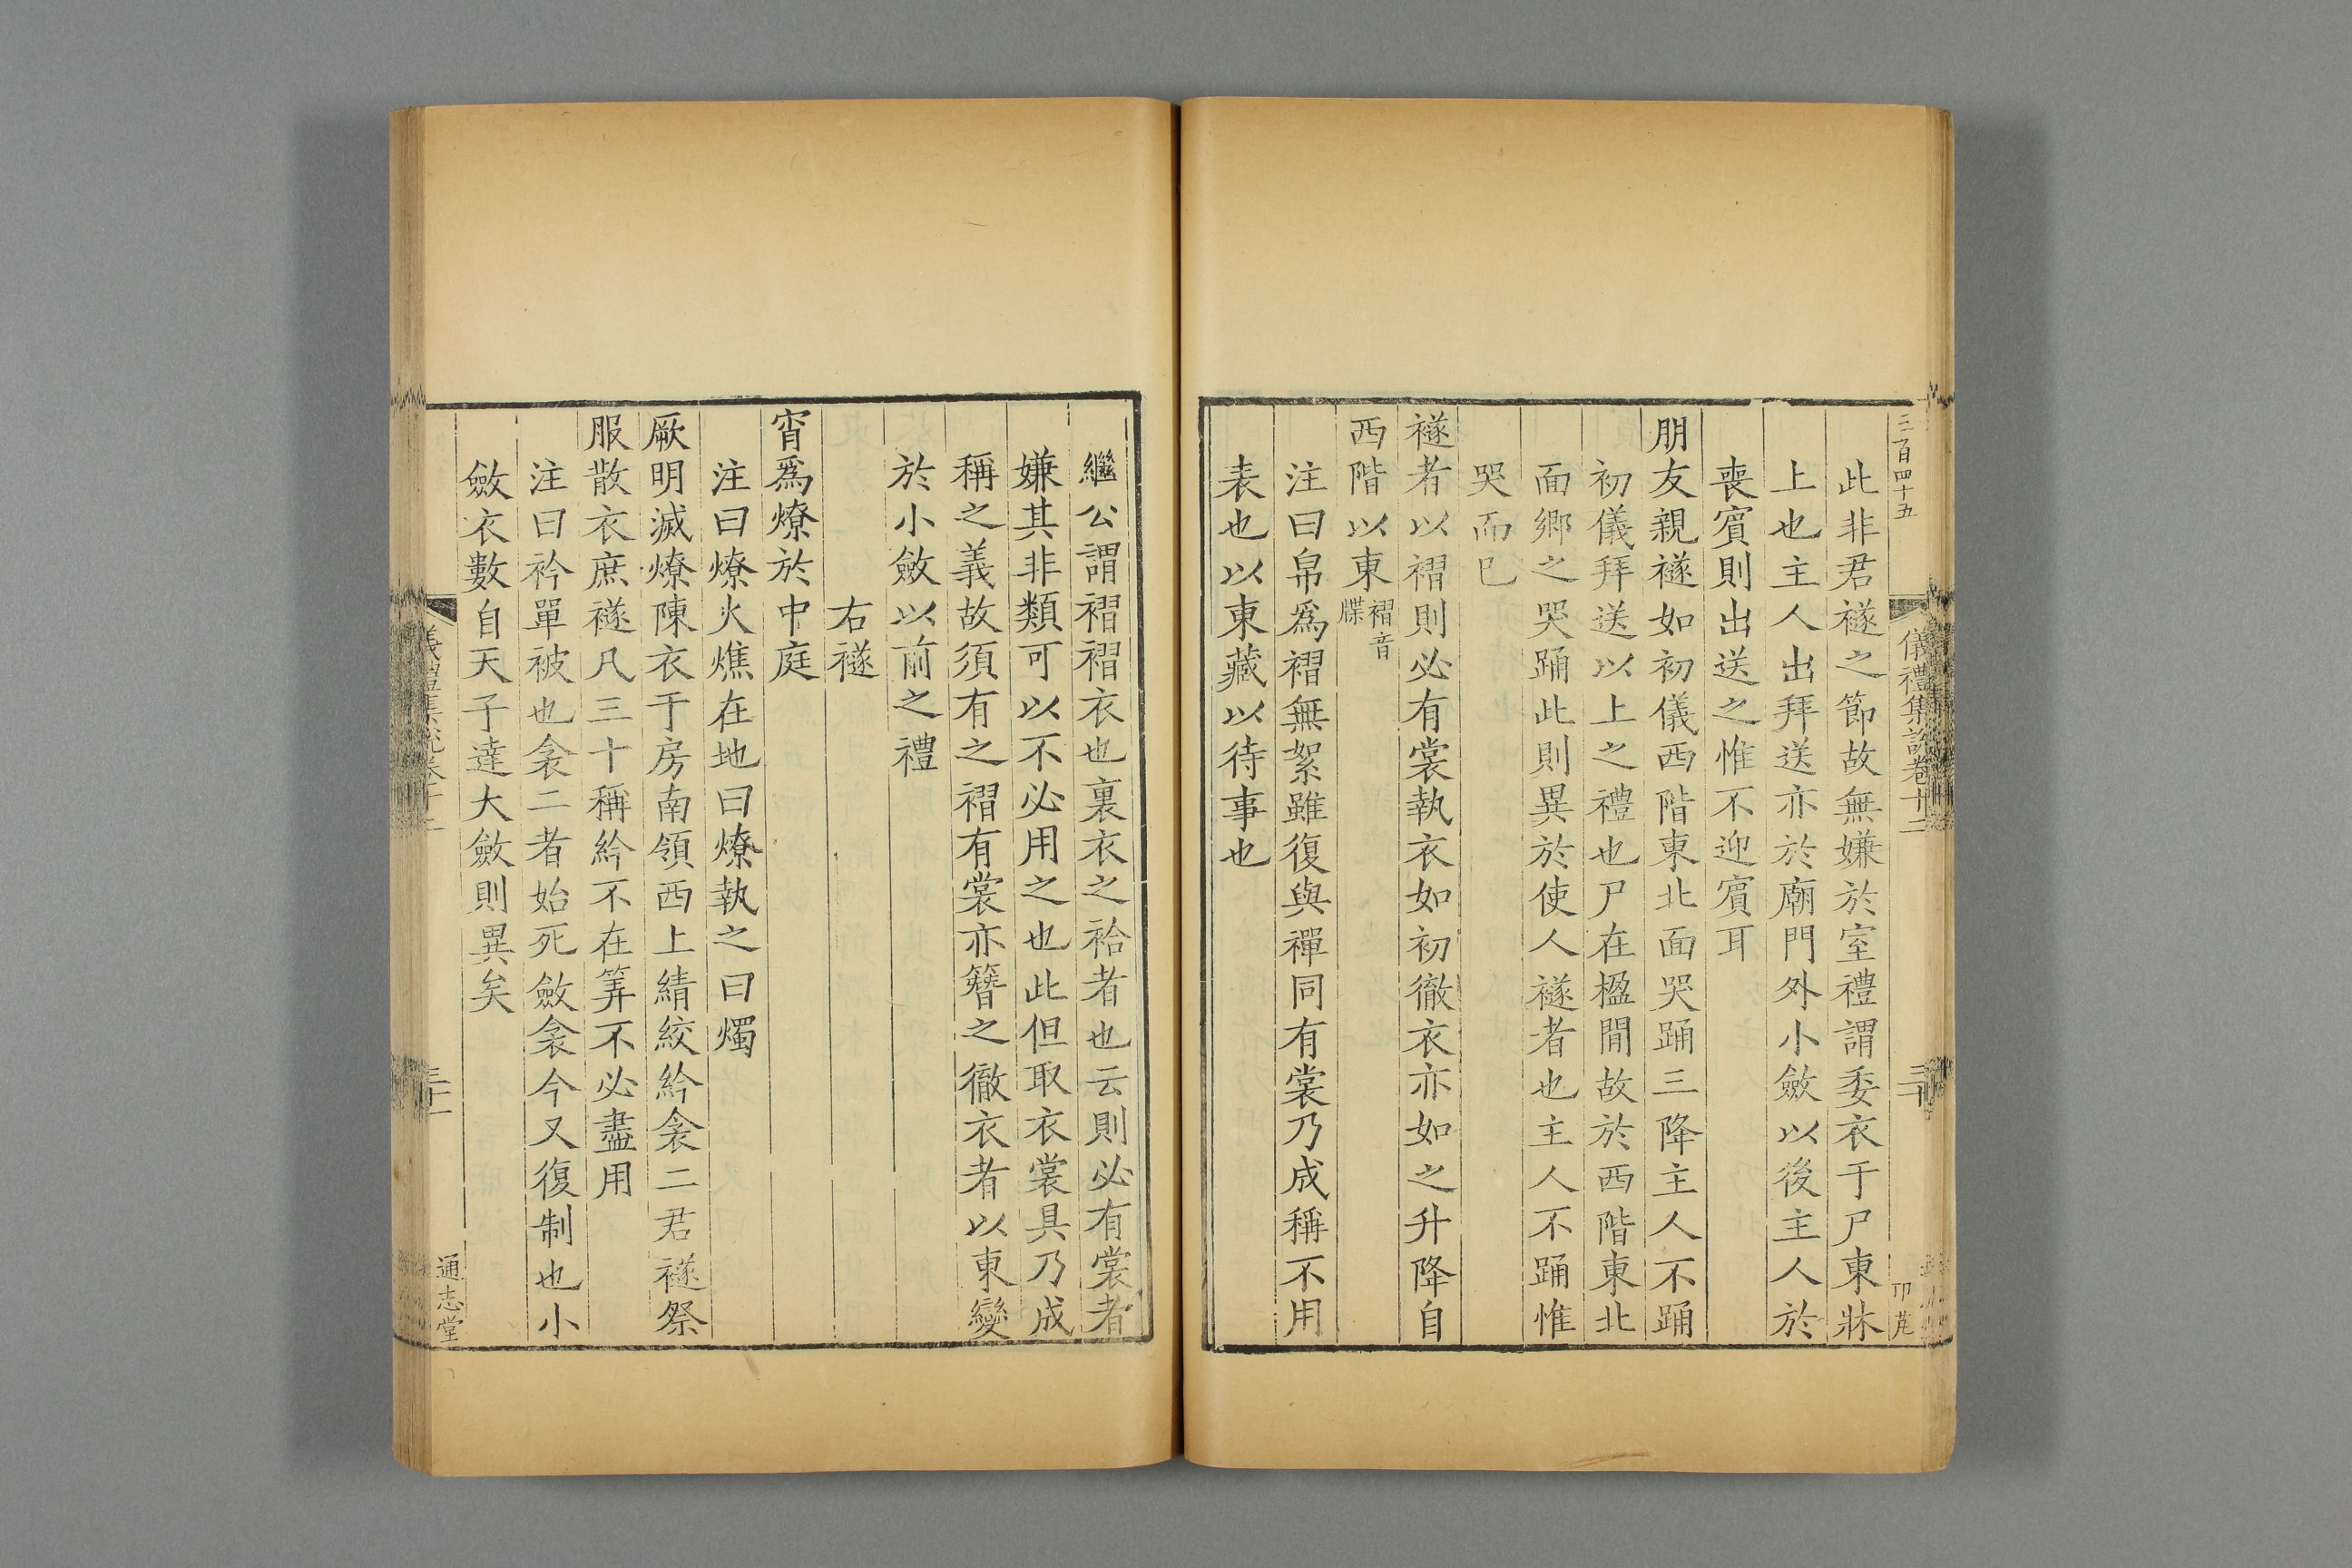 三百四十五
儀禮集說卷十二
三十
此非君襚之節故無嫌於室禮謂委衣于尸東牀
上也主人出拜送亦於廟門外小斂以後主人於
喪賓則出送之惟不迎賓耳
朋友親襚如初儀西階東北面哭踊三降主人不踊
初儀拜送以上之禮也尸在楹閒故於西階東北
面鄉之哭踊此則異於使人襚者也主人不踊惟
哭而已
襚者以褶則必有裳執衣如初徹衣亦如之升降自
西階以東褶音牒
注曰帛爲褶無絮雖復與禪同有裳乃成稱不用
表也以東藏以待事也
繼公謂褶褶衣也裏衣之袷者也云則必有裳者
嫌其非類可以不必用之也此但取衣裳具乃成
稱之義故須有之褶有裳亦簪之徹衣者以東變
於小斂以前之禮
右襚
宵爲燎於中庭
注曰燎火燋在地曰燎執之曰燭
厥明滅燎陳衣于房南領西上綪絞紟衾二君襚祭
服散衣庶襚凡三十稱紟不在筭不必盡用
注曰衿單被也衾二者始死斂衾今又復制也小
斂衣數自天子達大斂則異矣
三十一
通志堂